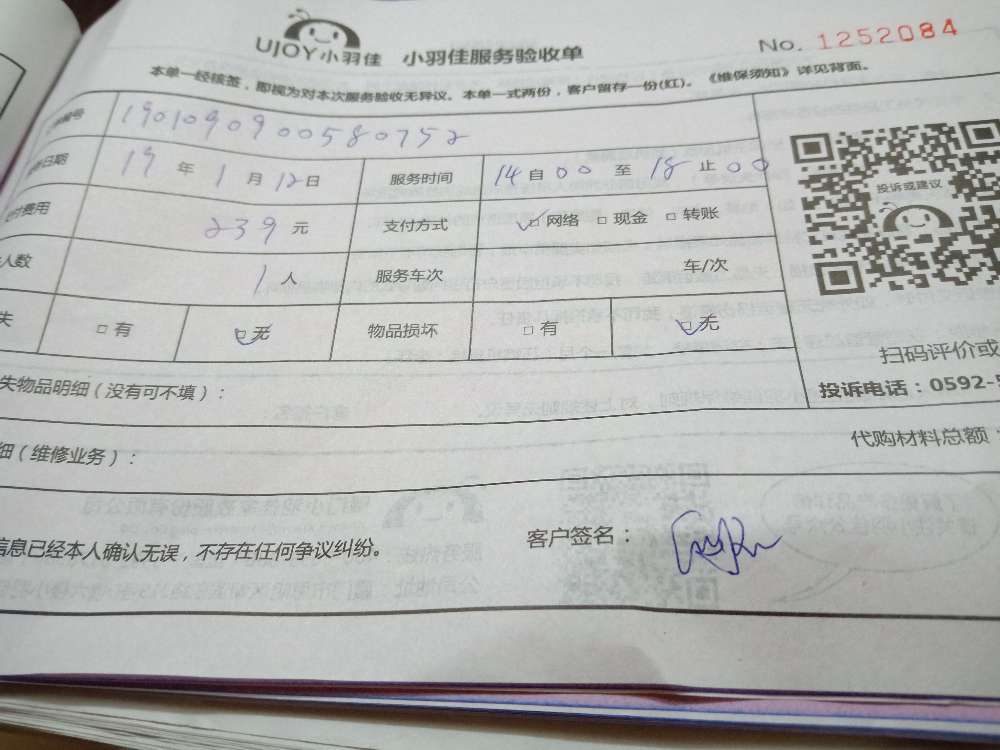 UJOY小羽佳 小羽佳服务验收单 No. 1252084
本单一经核签，即视为对本次服务验收无异议。本单一式两份，客户留存一份(红)。《维保须知》详见背面。
编号 1901090900580752
日期 19 年 1 月 12 日 服务时间 14 自 00 至 18 止 00
费用 239 元 支付方式 ☑网络 □现金 □转账
人数 1 人 服务车次 车/次
失 □有 ☑无 物品损坏 □有 ☑无
投诉或建议
扫码评价或
投诉电话：0592-
失物品明细（没有可不填）：
代购材料总额：
细（维修业务）：
信息已经本人确认无误，不存在任何争议纠纷。 客户签名：